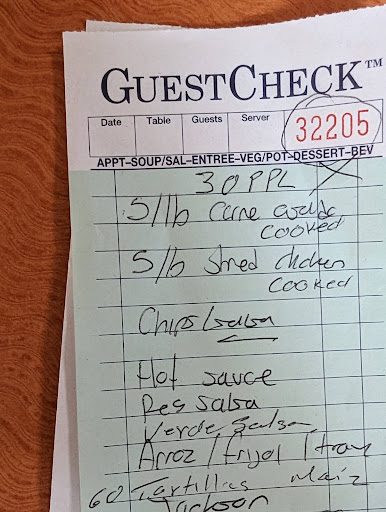 GUESTCHECK™
Date Table Guests Server 32205
APPT-SOUP/SAL-ENTREE-VEG/POT-DESSERT-BEV
30 PPL
5/lb Carne asada
cooked
5/lb shred chicken
cooked
Chips/salsa
Hot sauce
Res salsa
Verde Salsa
Arroz / frijol / tray
60 Tortillas Maiz